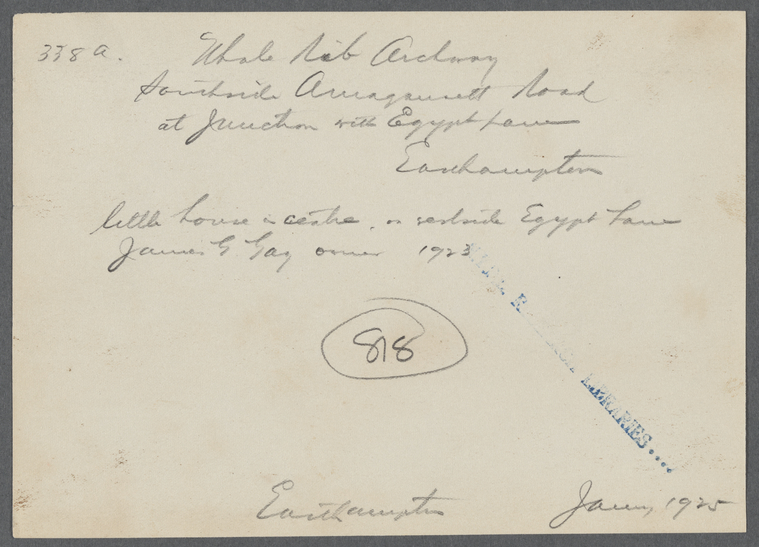 338a. Whale Rib Archway
Southside Amagansett Road
at Junction with Egypt Lane
Easthampton
little house in centre, on westside Egypt Lane
James G Gay owner 1923
818
LIBRARIES....
Easthampton Jany, 1925